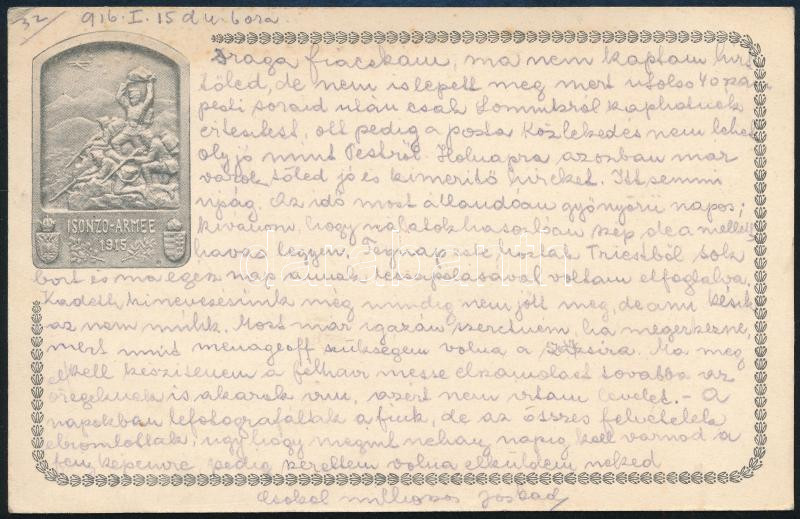 32
916. I. 15 d.u. 6 ora
ISONZO-ARMEE
1915
Draga fiacskám, ma nem kaptam hirt
tőled, de nem is lepett meg mert utolso
pesti soraid utan csak kaphatnék
ertesitest, ott pedig a posta közlekedés nem lehet
oly jó mint Pestről. Holnapra azonban mar
varok tőled jó és kimeritő hireket. Itt semmi
ujság. Az idő most állandóan gyönyörü napos;
kivanom, hogy nálatok hasonloan szép de a mellett
havas legyen. Tegnap este hoztak Triestből sok
bort és ma egesz nap annak lecsapolásával voltam elfoglalva.
Kadett kinevezésünk még mindig nem jött meg, de ami késik
az nem múlik. Most mar igazán szeretnem, ha megérkezne,
mert mint menagechef szükségem volna a . Ma meg
el kell készitenem a félhavi messe elszámolást továbbá az
öregeknek is akarok irni, azért nem irtam levelet. - A
napokban lefotografáltak a fiuk, de az összes felvételek
elromlottak, ugy hogy megint nehány napig kell várnod a
kepemre pedig szerettem volna elküldeni neked
Csókol milliószor
darabanth